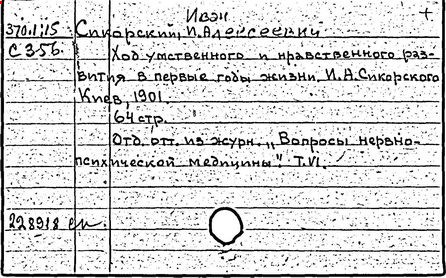 Иван
370.1:15 Сикорский, И. Алексеевич
С356. Ход умственного и нравственного раз-
вития в первые годы жизни. И.А.Сикорского
Киев, 1901.
64 стр.
Отд. отт. из журн. „Вопросы нервно-
психической медицины". Т.VI.
228918